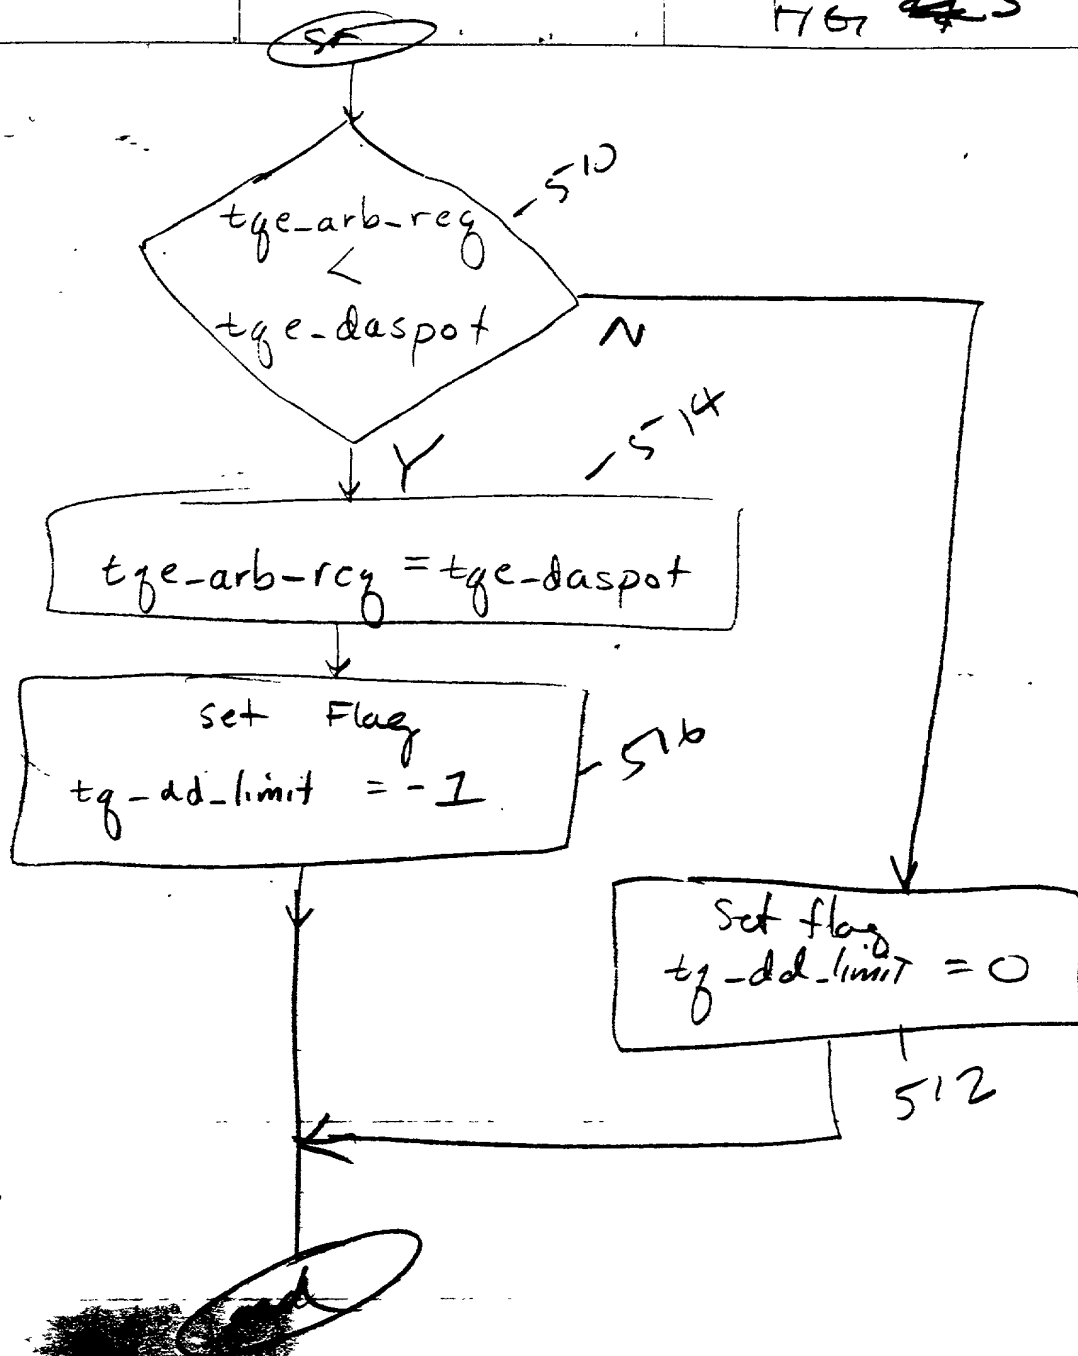 510
tqe_arb_req
<
tqe_daspot
N
Y
514
tqe_arb_req = tqe_daspot
set Flag
tq_dd_limit = -1
516
Set flag
tq_dd_limit = 0
512